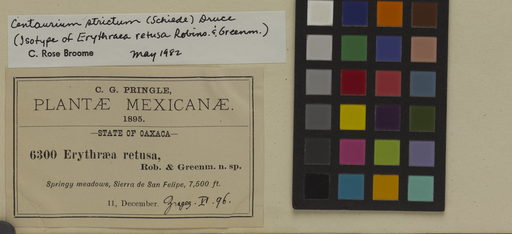 Centaurium strictum (Schiede) Druce
(Isotype of Erythraea retusa Robins. & Greenm.)
C. Rose Broome May 1982
C. G. PRINGLE,
PLANTÆ MEXICANÆ.
1895.
—STATE OF OAXACA—
6300 Erythræa retusa,
Rob. & Greenm. n. sp.
Springy meadows, Sierra de San Felipe, 7,500 ft.
11, December.